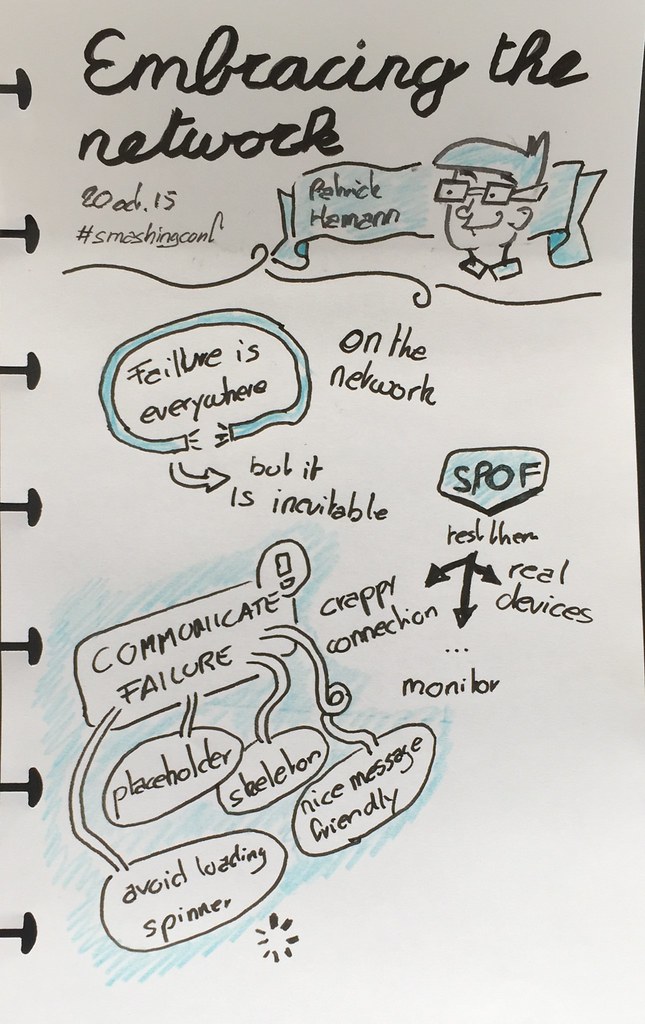 Embracing the
network
20 oct. 15
#smashingconf
Patrick
Hamann
Failure is
everywhere
on the
network
but it
is inevitable
SPOF
test them
crappy
connection
real
devices
...
monitor
!
COMMUNICATE
FAILURE
placeholder
skeleton
nice message
friendly
avoid loading
spinner